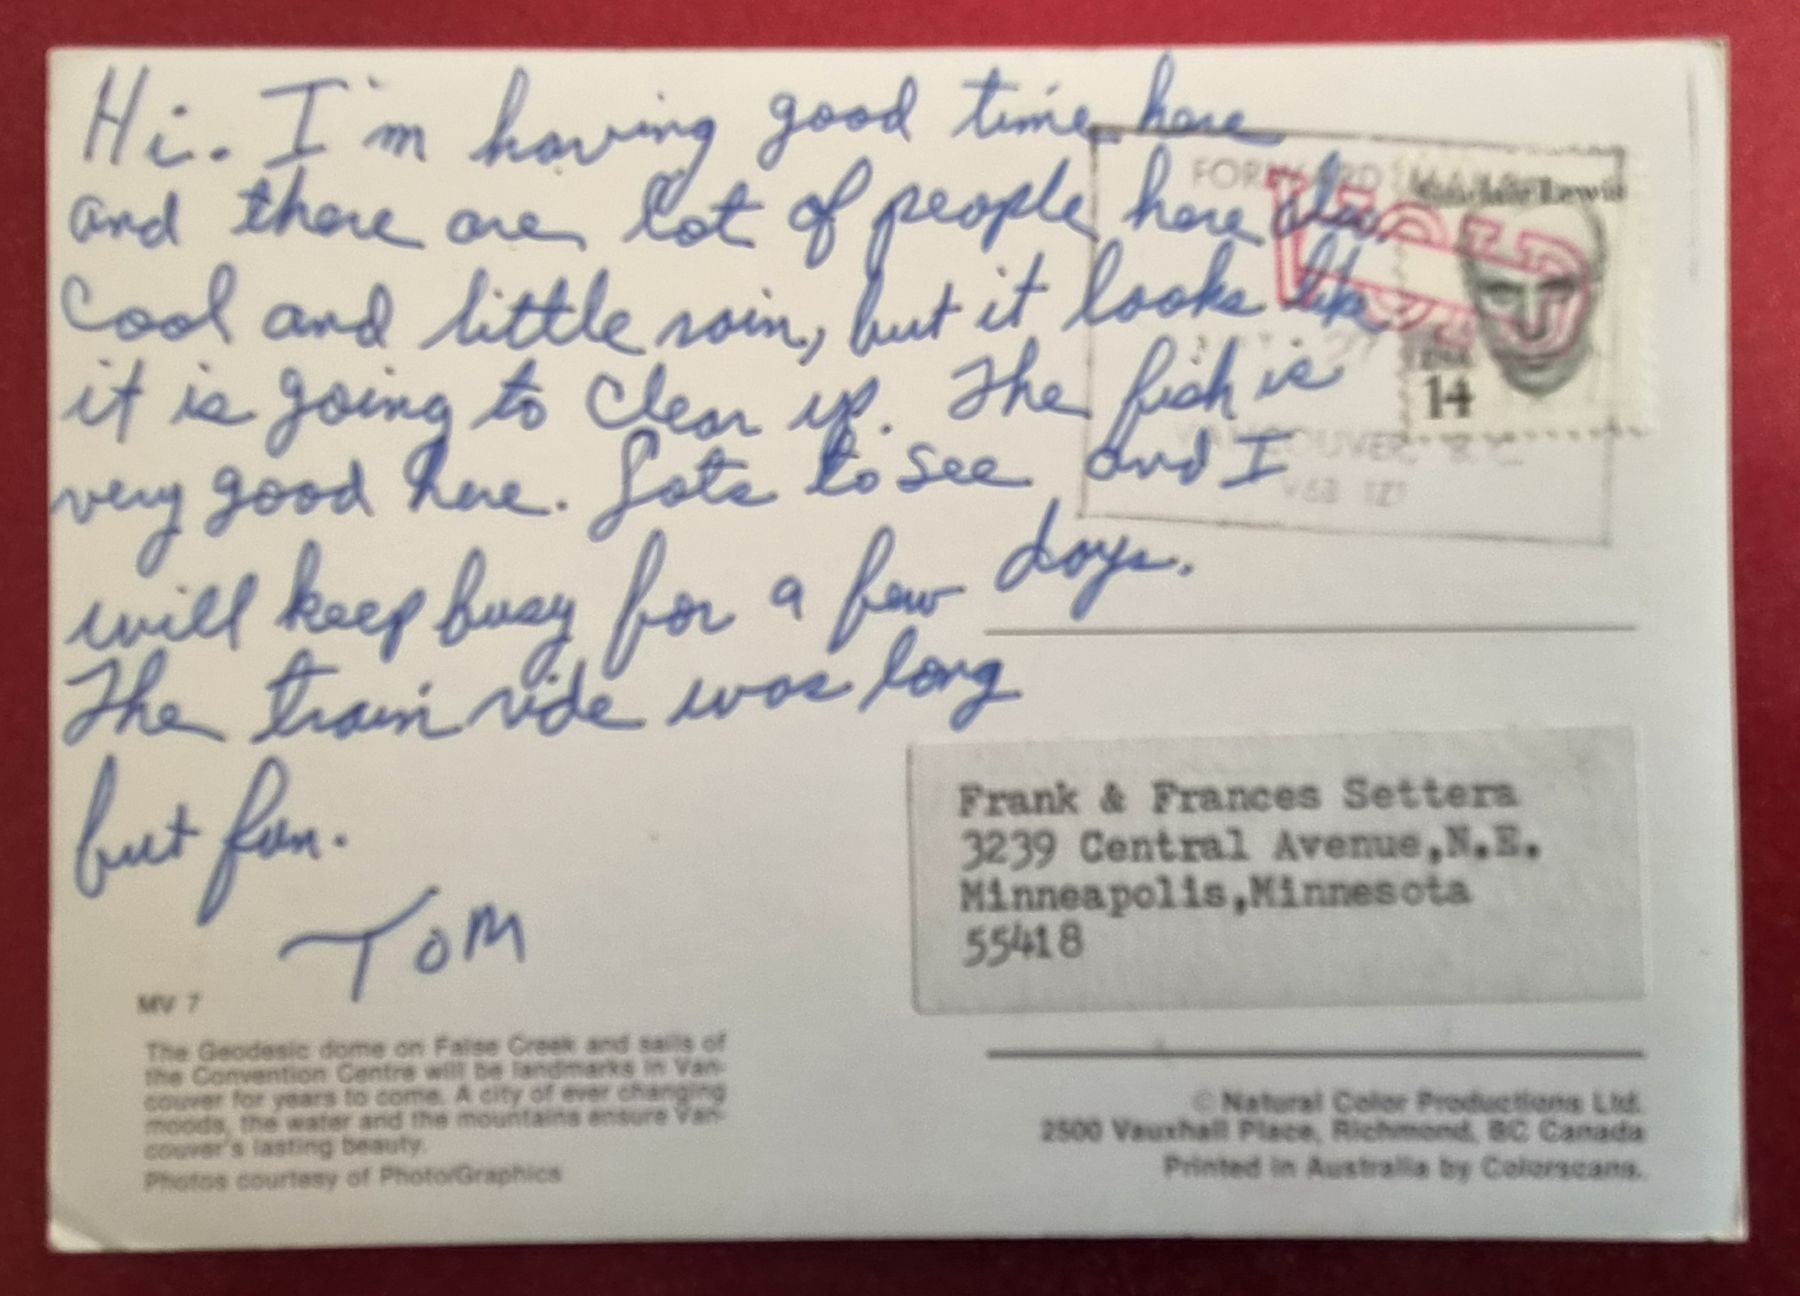 Hi. I'm having good time here
and there are lot of people here also.
Cool and little rain, but it looks like
it is going to clear up. The fish is
very good here. Lots to see and I
will keep busy for a few days.
The train ride was long
but fun.
TOM
FORWARD MAIL
Sinclair Lewis
USA
14
VANCOUVER, B.C.
V6B 1Z1
Frank & Frances Settera
3239 Central Avenue,N.E.
Minneapolis,Minnesota
55418
MV 7
The Geodesic dome on False Creek and sails of
the Convention Centre will be landmarks in Van-
couver for years to come. A city of ever changing
moods, the water and the mountains ensure Van-
couver's lasting beauty.
Photos courtesy of Photo/Graphics
© Natural Color Productions Ltd.
2500 Vauxhall Place, Richmond, BC Canada
Printed in Australia by Colorscans.